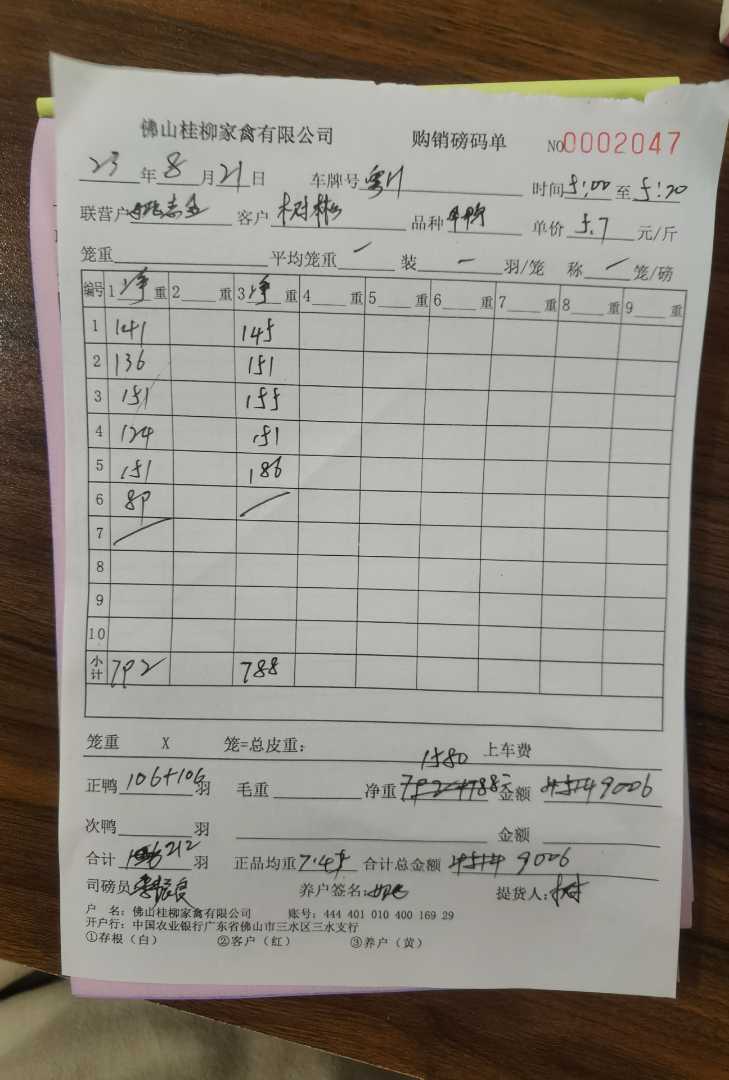 佛山桂柳家禽有限公司 购销磅码单 NO0002047
23年8月21日 车牌号 时间5:00至5:20
联营户 客户树彬 品种 单价5.7元/斤
笼重 平均笼重 一 装 一 羽/笼 称 一 笼/磅
编号 1净重 2重 3净重 4重 5重 6重 7重 8重 9重
1 141 145
2 136 151
3 151 155
4 124 151
5 151 186
6 89
7
8
9
10
小计 792 788
笼重 X 笼=总皮重: 1580 上车费
正鸭106+106羽 毛重 净重 金额 9006
次鸭 羽 金额
合计 212羽 正品均重7.45 合计总金额 9006
司磅员 养户签名: 提货人:树
户 名: 佛山桂柳家禽有限公司 账号: 444 401 010 400 169 29
开户行: 中国农业银行广东省佛山市三水区三水支行
①存根(白) ②客户(红) ③养户(黄)